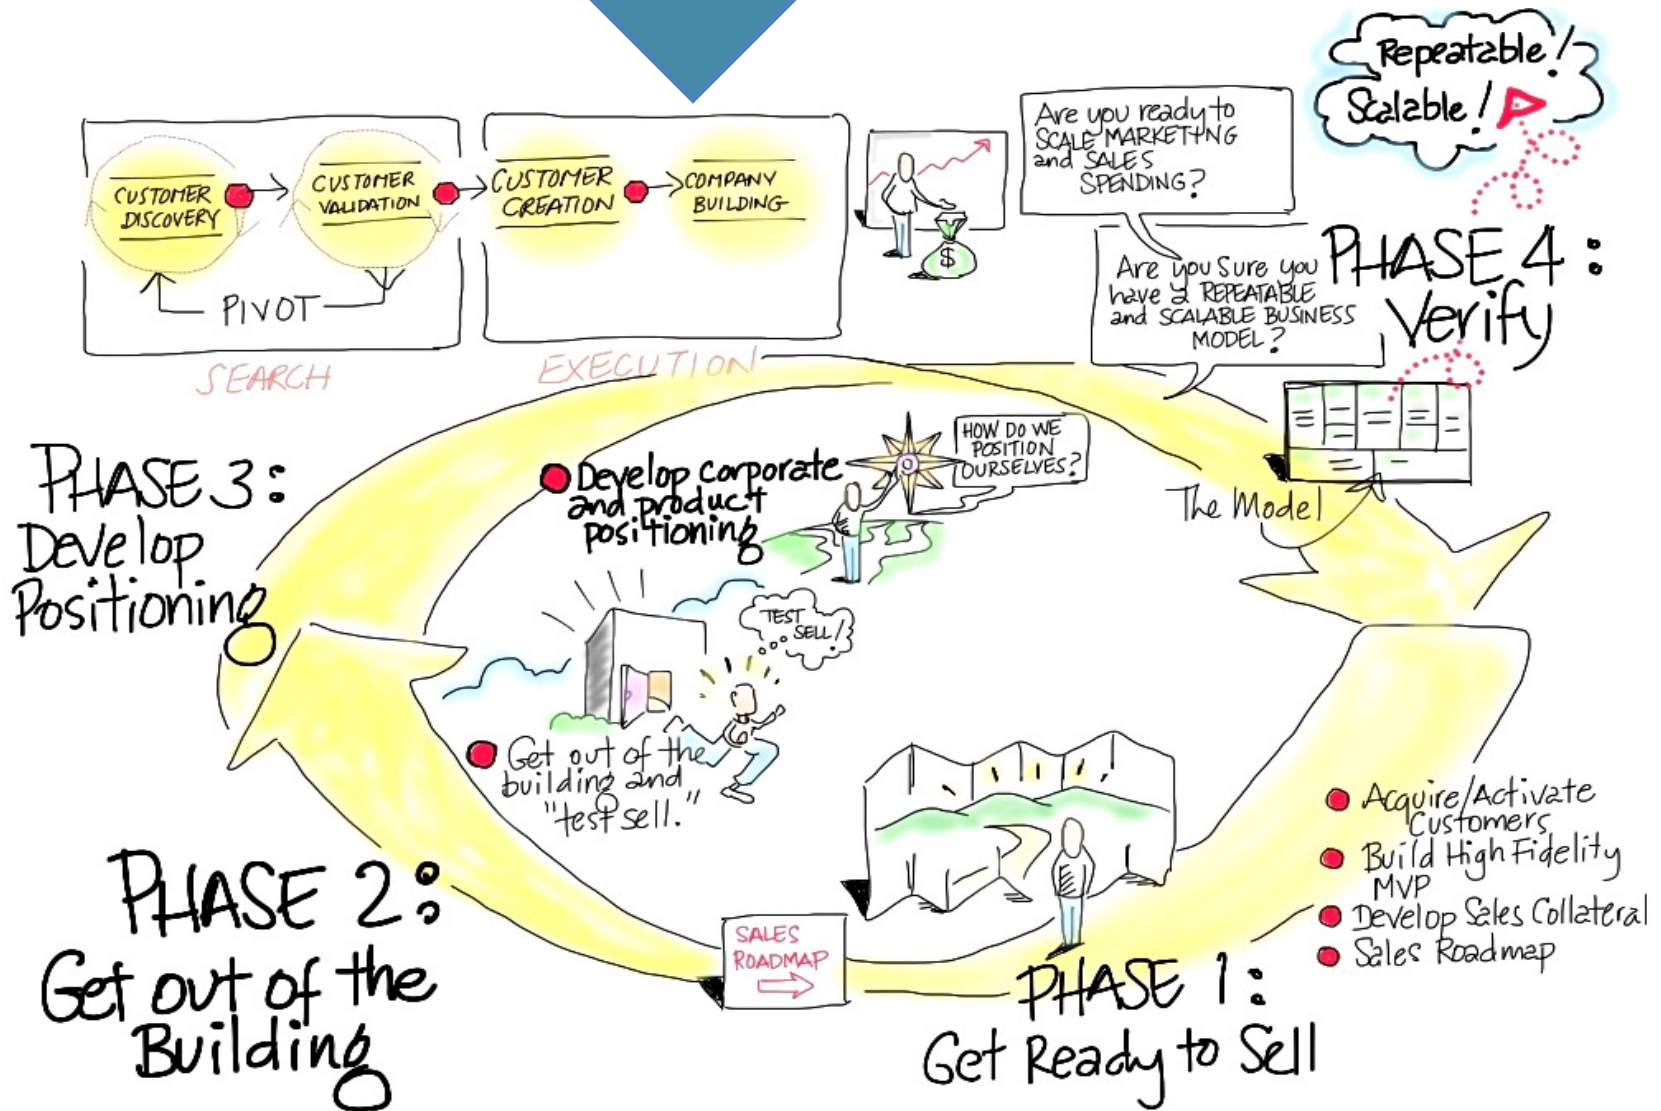 CUSTOMER
DISCOVERY
CUSTOMER
VALIDATION
PIVOT
SEARCH
CUSTOMER
CREATION
COMPANY
BUILDING
EXECUTION
$
Are you ready to
SCALE MARKETING
and SALES
SPENDING?
Are you Sure you
have a REPEATABLE
and SCALABLE BUSINESS
MODEL?
Repeatable!
Scalable!
PHASE 4:
Verify
The Model
PHASE 3:
Develop
Positioning
Develop corporate
and product
positioning
HOW DO WE
POSITION
OURSELVES?
TEST
SELL!
Get out of the
building and
"test sell."
PHASE 2:
Get out of the
Building
SALES
ROADMAP
PHASE 1:
Get Ready to Sell
Acquire/Activate
Customers
Build High Fidelity
MVP
Develop Sales Collateral
Sales Roadmap